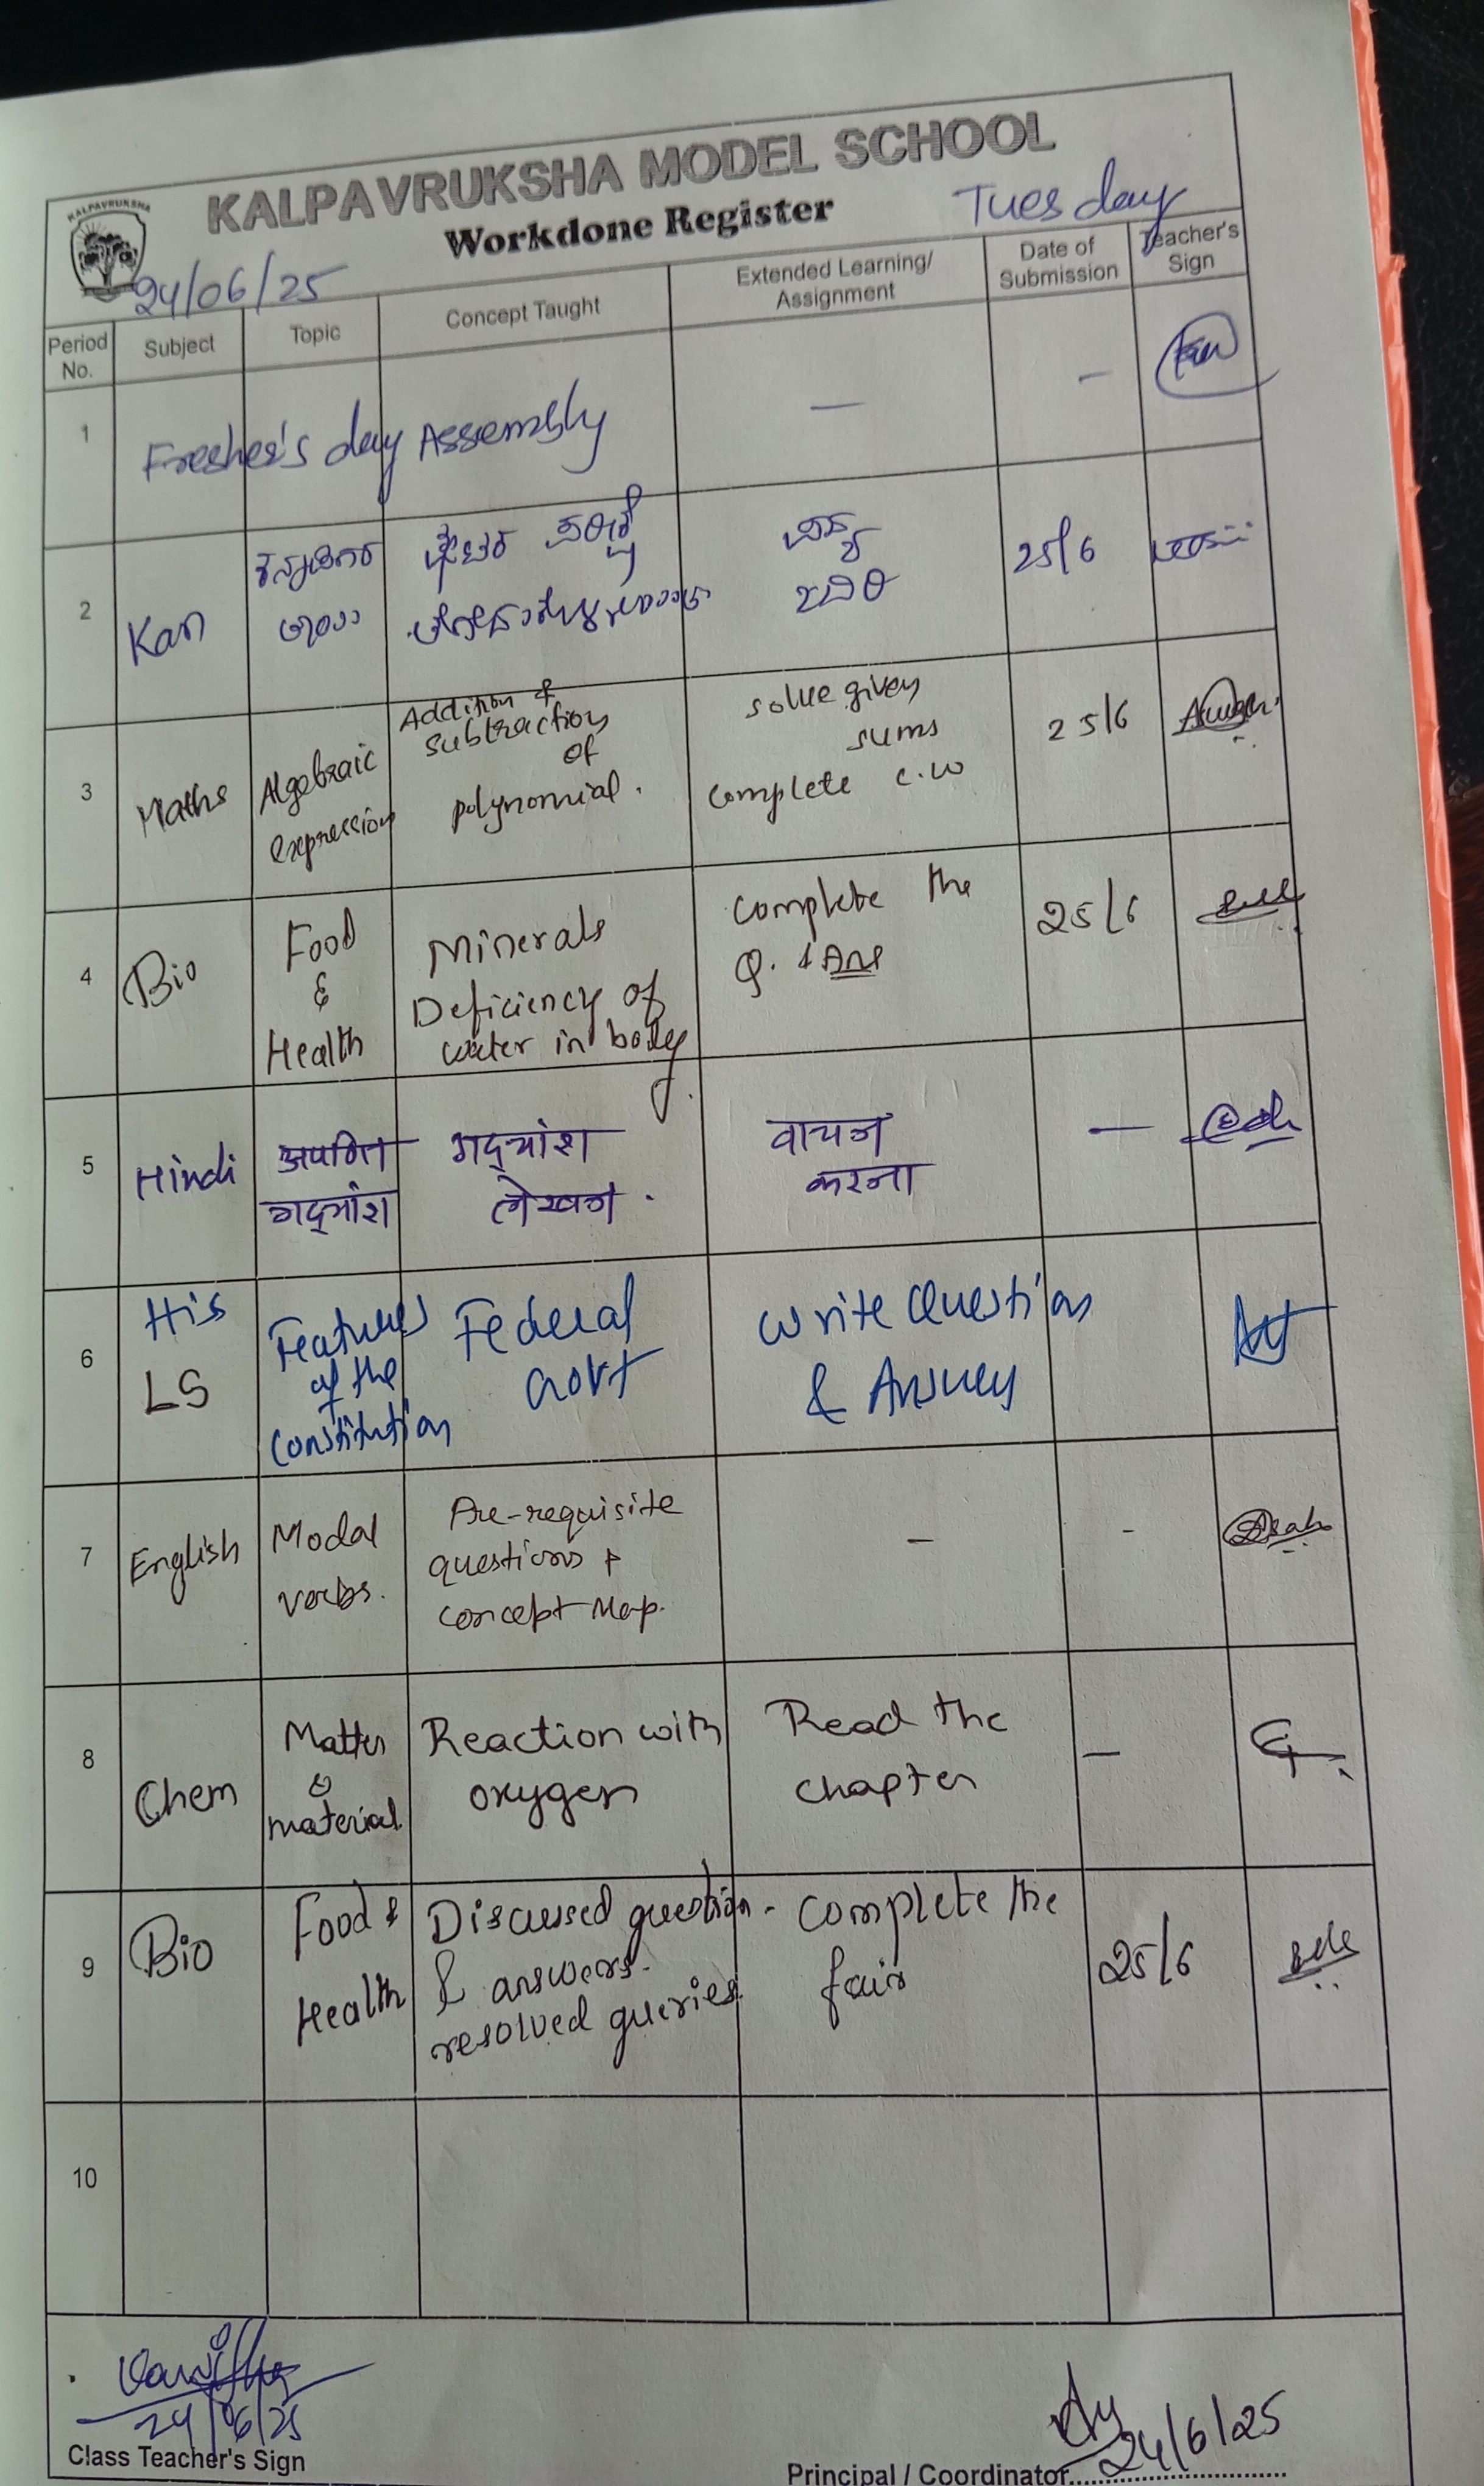 KALPAVRUKSHA
KALPAVRUKSHA MODEL SCHOOL
Workdone Register
Tuesday
24/06/25
Period No.
Subject
Topic
Concept Taught
Extended Learning/
Assignment
Date of
Submission
Teacher's
Sign
1
Fresher's day Assembly
—
—
2
Kan
25/6
3
Maths
Algebraic
expression
Addition &
subtraction
of
polynomial.
solve given
sums
complete c.w
25/6
4
Bio
Food
&
Health
Minerals
Deficiency of
water in body.
Complete the
Q. & Ans
25/6
5
Hindi
अपठित
गद्यांश
गद्यांश
लेखन.
वाचन
करना
—
6
His
LS
Features
of the
Constitution
Federal
Govt
Write Question
& Answer
7
English
Modal
verbs.
Pre-requisite
questions &
concept Map.
-
-
8
Chem
Matter
&
material
Reaction with
oxygen
Read the
chapter
—
9
Bio
Food &
Health
Discussed question
& answers.
resolved queries.
- Complete the
fair
25/6
10
24/06/25
Class Teacher's Sign
24/6/25
Principal / Coordinator